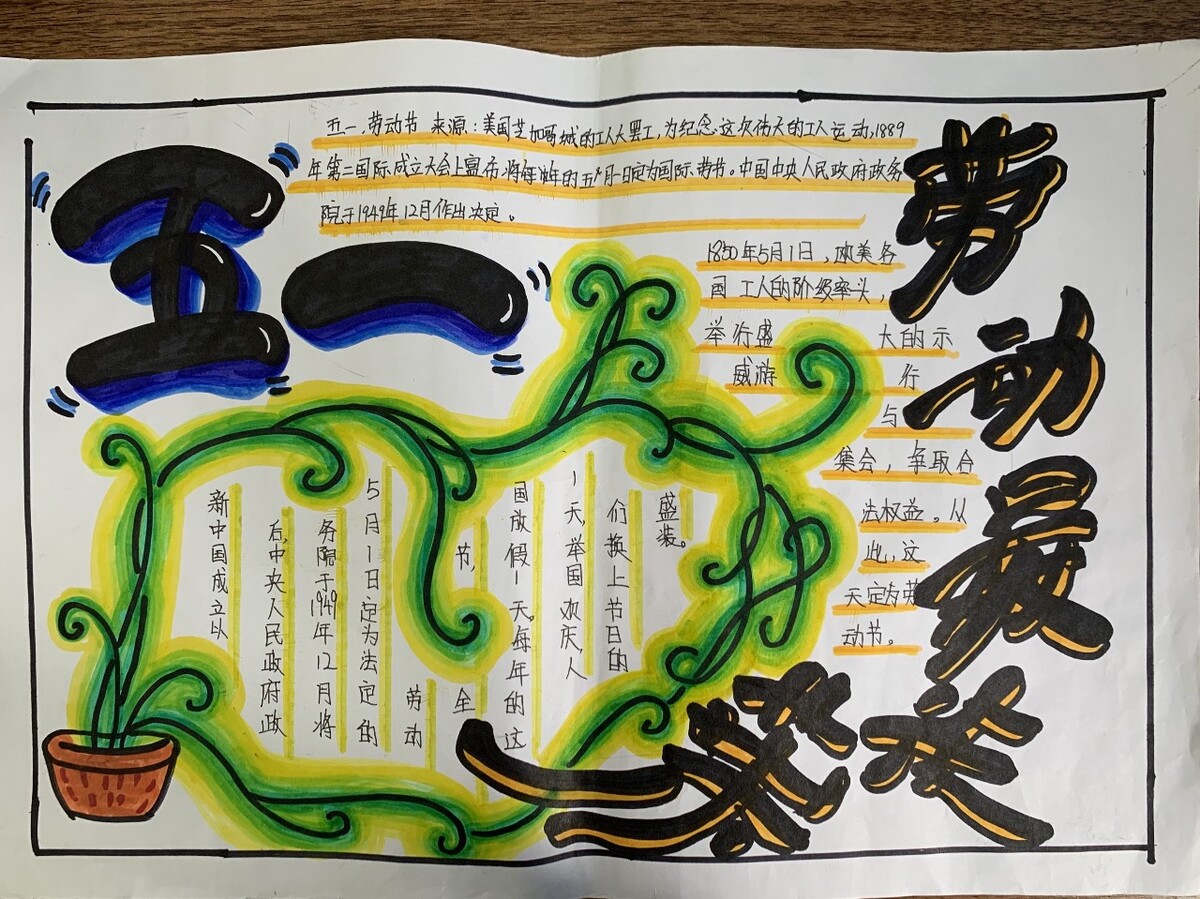 五一
劳动最光荣
五一,劳动节 来源:美国芝加哥城的工人大罢工,为纪念这次伟大的工人运动,1889
年第二国际成立大会上宣布将每年的五月一日定为国际劳节。中国中央人民政府政务
院于1949年12月作出决定。
1850年5月1日,欧美各
国 工人的阶级率头,
举行盛 大的示
威游 行
与
集会,争取合
法权益。从
此,这
天定为劳
动节。
新中国成立以
后,中央人民政府政
务院于1949年12月将
5月1日定为法定的
劳动
节,全
国放假一天。每年的这
一天,举国欢庆人
们换上节日的
盛装。